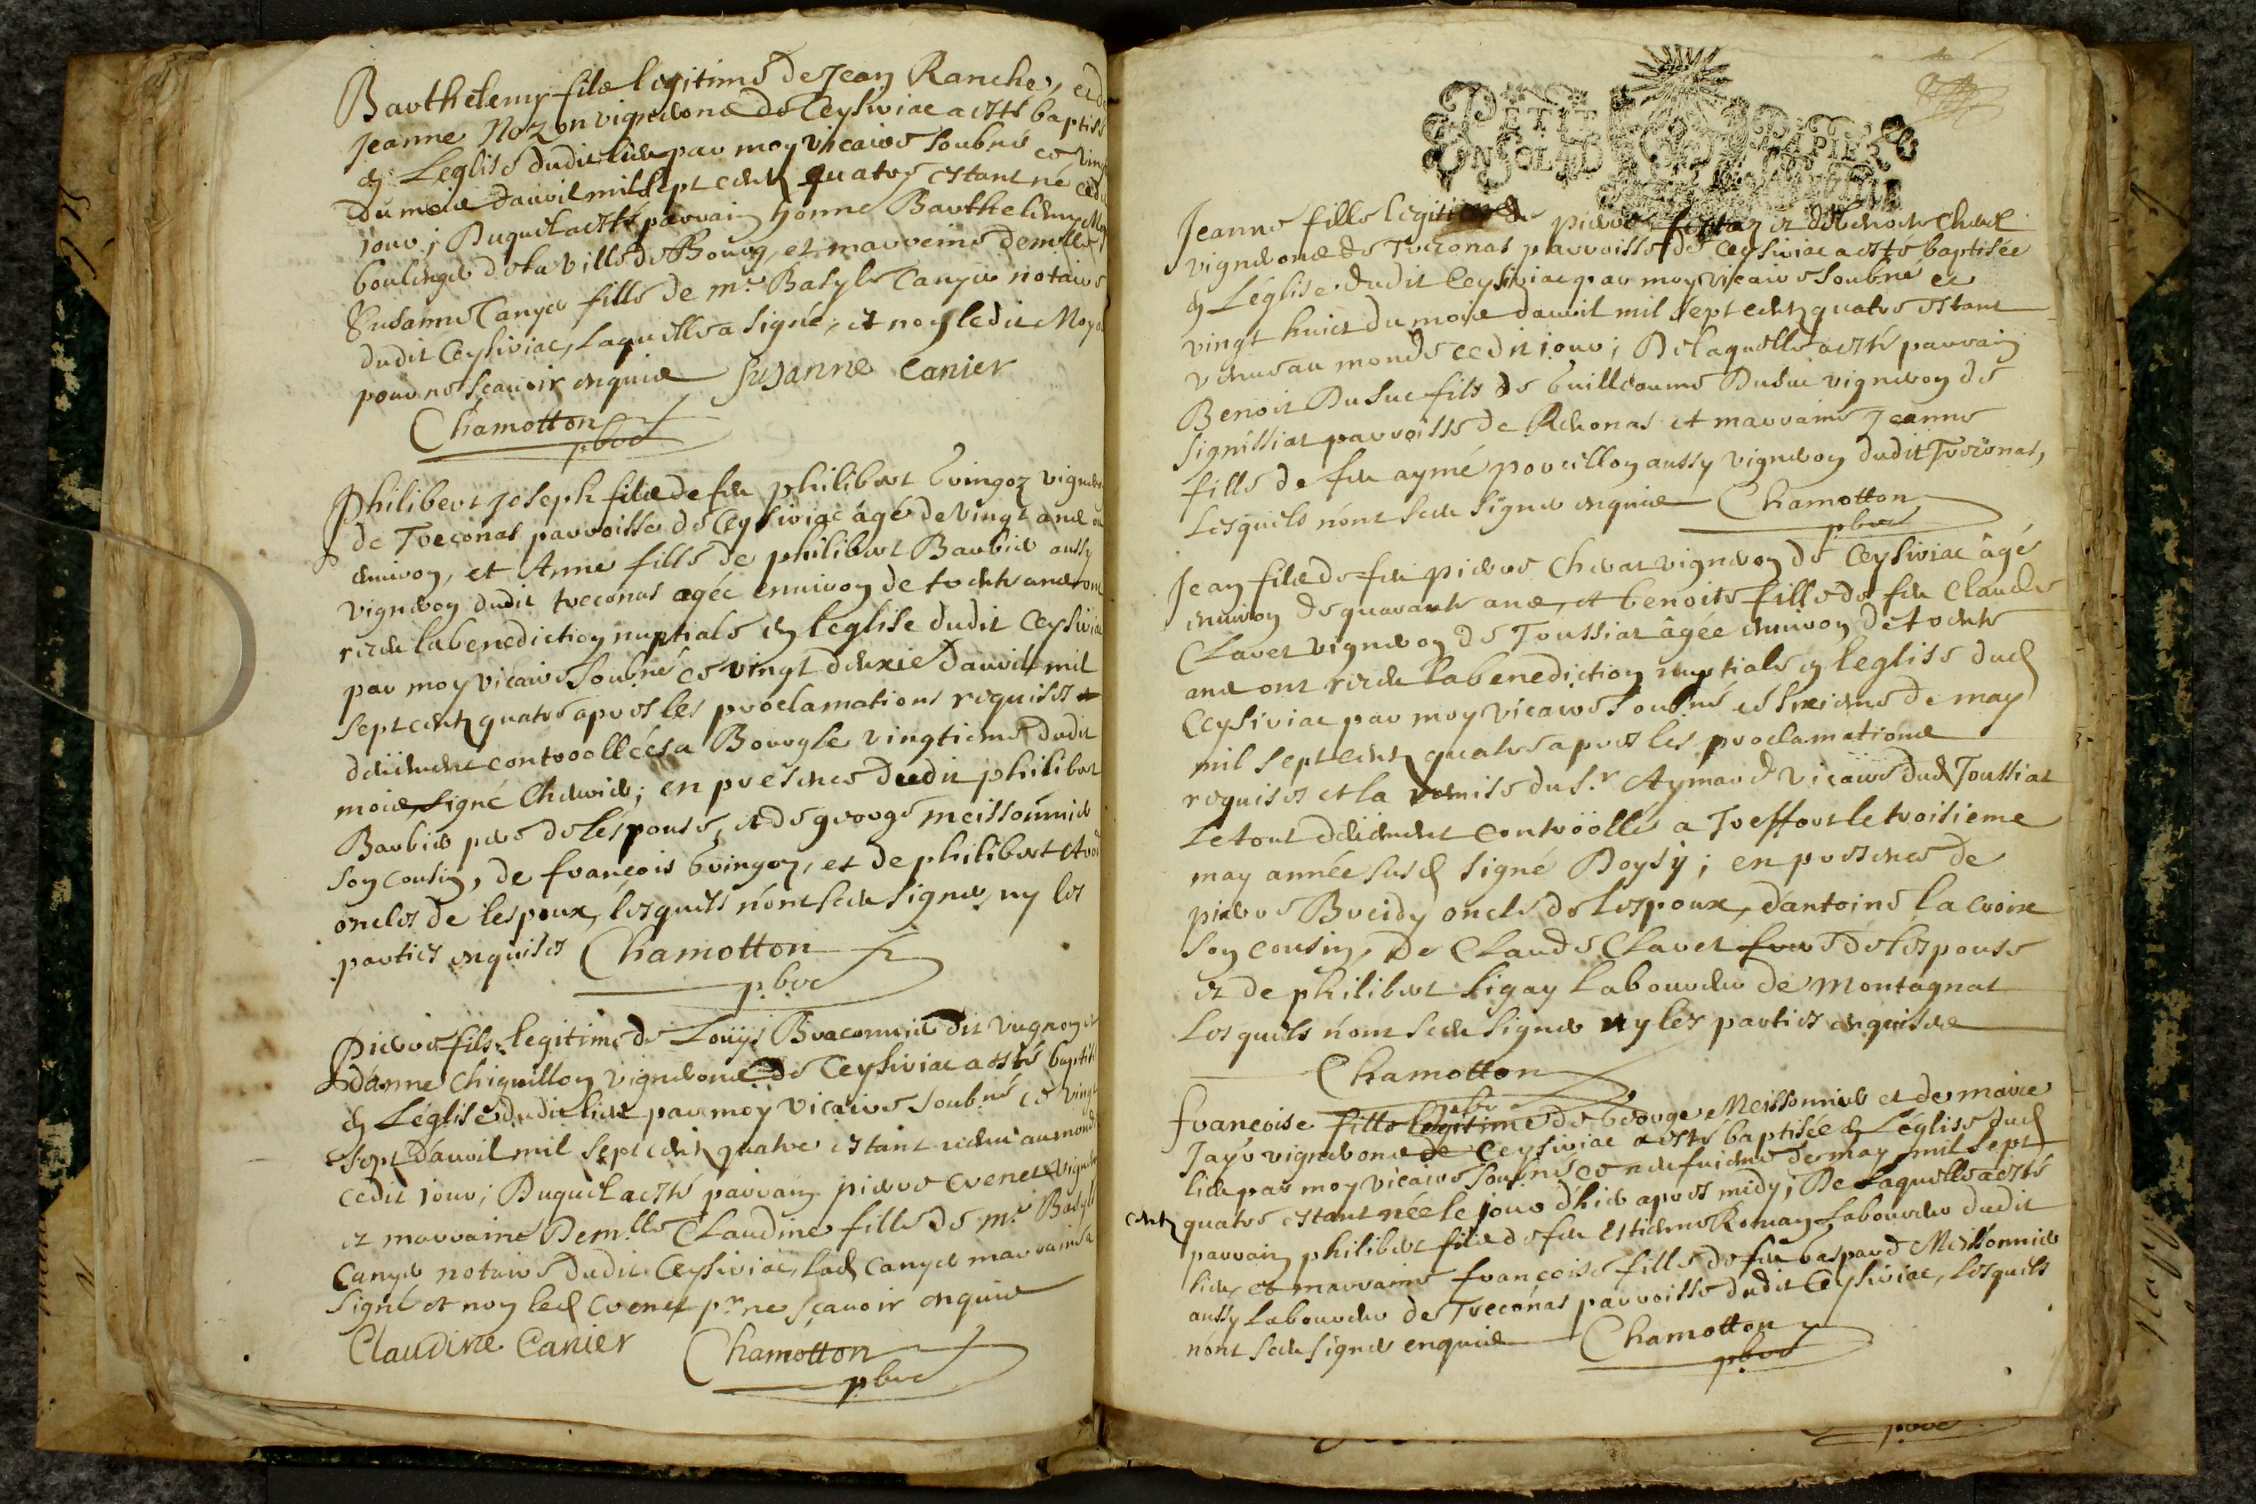 Barthelemy fils legitime de Jean Ranche, et de
Jeanne Nozon vignerons de Ceysiriac a esté baptisé
en Leglise dudit lieu par moy vicaire soubné ce vingt
du mois d'avril mil sept centz quatre estant né ced
jour; Duquel a esté parrain honne Barthelemy
boulenger de la ville de Bourg, et marreine demlle
Susanne Canyer fille de me. Basyle Canyer notaire
dudit Ceysiriac, laquelle a signé, et non ledit
pour ne sçavoir enquis Susanne Canier
Chamotton
pbre
Philibert Joseph fils de feu philibert Gringoz vigneron
de Treconas parroisse de Ceysiriac âgé de vingt ans ou
environ, et Anne fille de philibert Barbier aussy
vigneron dudit treconas agée environ de trente ans ont
receu la benediction nuptiale en leglise dudit Ceysiriac
par moy vicaire soubné ce vingt deuxie d'avril mil
sept centz quatre apres les proclamations requises et
deüement controollées a Bourg le vingtieme dudit
mois, signé Cheurier; en presence dudit philibert
Barbier pere de l'espouse, et de george meissonnier
son cousin, de françois Gringoz, et de philibert
oncles de lespoux, lesquels n'ont sceu signer, ny les
parties enquises Chamotton
pbre
Pierre fils legitime de Loüys Braconnier dit vugnon et
d'anne Chiquillon vignerons de Ceysiriac a esté baptisé
en Léglise dudit lieu par moy vicaire soubné ce vingt
sept d'auril mil sept centz quatre estant venu au monde
cedit jour; Duquel a esté parrain pierre Crenet vigneron
et marraine Demlle Claudine fille de me. Basyle
Canyer notaire dudit Ceysiriac, lad Canyer marraine a
signé et non led Crenet pr ne sçavoir enquis
Claudine Canier Chamotton
pbre
PETIT PAPIER
Jeanne fille legitime de pierre et de
vignerons de Treconas parroisse de Ceysiriac a esté baptisée
en Léglise dudit Ceysiriac par moy vicaire soubné ce
vingt huict du mois d'avril mil sept centz quatre estant
venue au monde cedit jour; De laquelle a esté parrain
Benoit Dusuc fils de Guilleaume Dusuc vigneron de
Signissiat parroisse de Reuonas et marraine Jeanne
fille de feu aymé porcillon aussy vigneron dudit Treconas,
Lesquels n'ont sceu signer enquis Chamotton
pbre
Jean fils de feu pierre Cherat vigneron de Ceysiriac âgé
environ de quarante ans, et benoite fille de feu Claude
Clavet vigneron de Toussiat âgée environ de trente
ans ont receu la benediction nuptiale en leglise dud
Ceysiriac par moy vicaire soubné ce sixieme de may
mil sept centz quatre apres les proclamations
requises et la remise du Sr. Aymard vicaire dud Toussiat
Le tout deüement controölle a Treffort le troisieme
may année susd signé Boysy; en presence de
pierre Breidy oncle de lespoux, d'antoine la croix
son cousin, de Claude Clavet frere de lespouse
et de philibert Sigay laboureur de Montagnat
Lesquels n'ont sceu signer ny les parties enquises
Chamotton
pbre
françoise fille legitime de George Meissonnier et de marie
Jayr vignerons de Ceysiriac a esté baptisée en Léglise dud
lieu par moy vicaire soubné ce neufuieme de may mil sept
centz quatre estant née le jour d'hier apres midy; De laquelle a esté
parrain philibert fils de feu Estienne Roman laboureur dudit
lieu, et marraine françoise fille de feu Gaspard Meissonnier
aussy laboureur de Treconas parroisse dudit Ceysiriac, lesquels
n'ont sceu signer enquis Chamotton
pbre